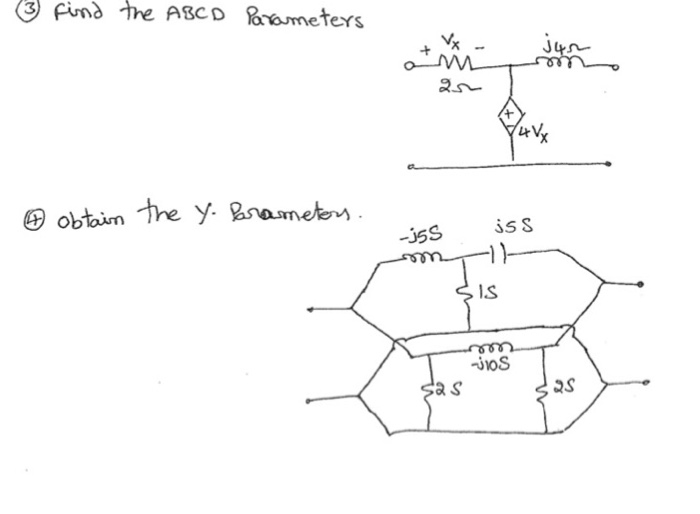 ③ Find the ABCD Parameters
+ Vx -
j4Ω
2Ω
+
-
4Vx
④ obtain the y. Parameters.
-j5S
j5S
1S
-j10S
2S
2S